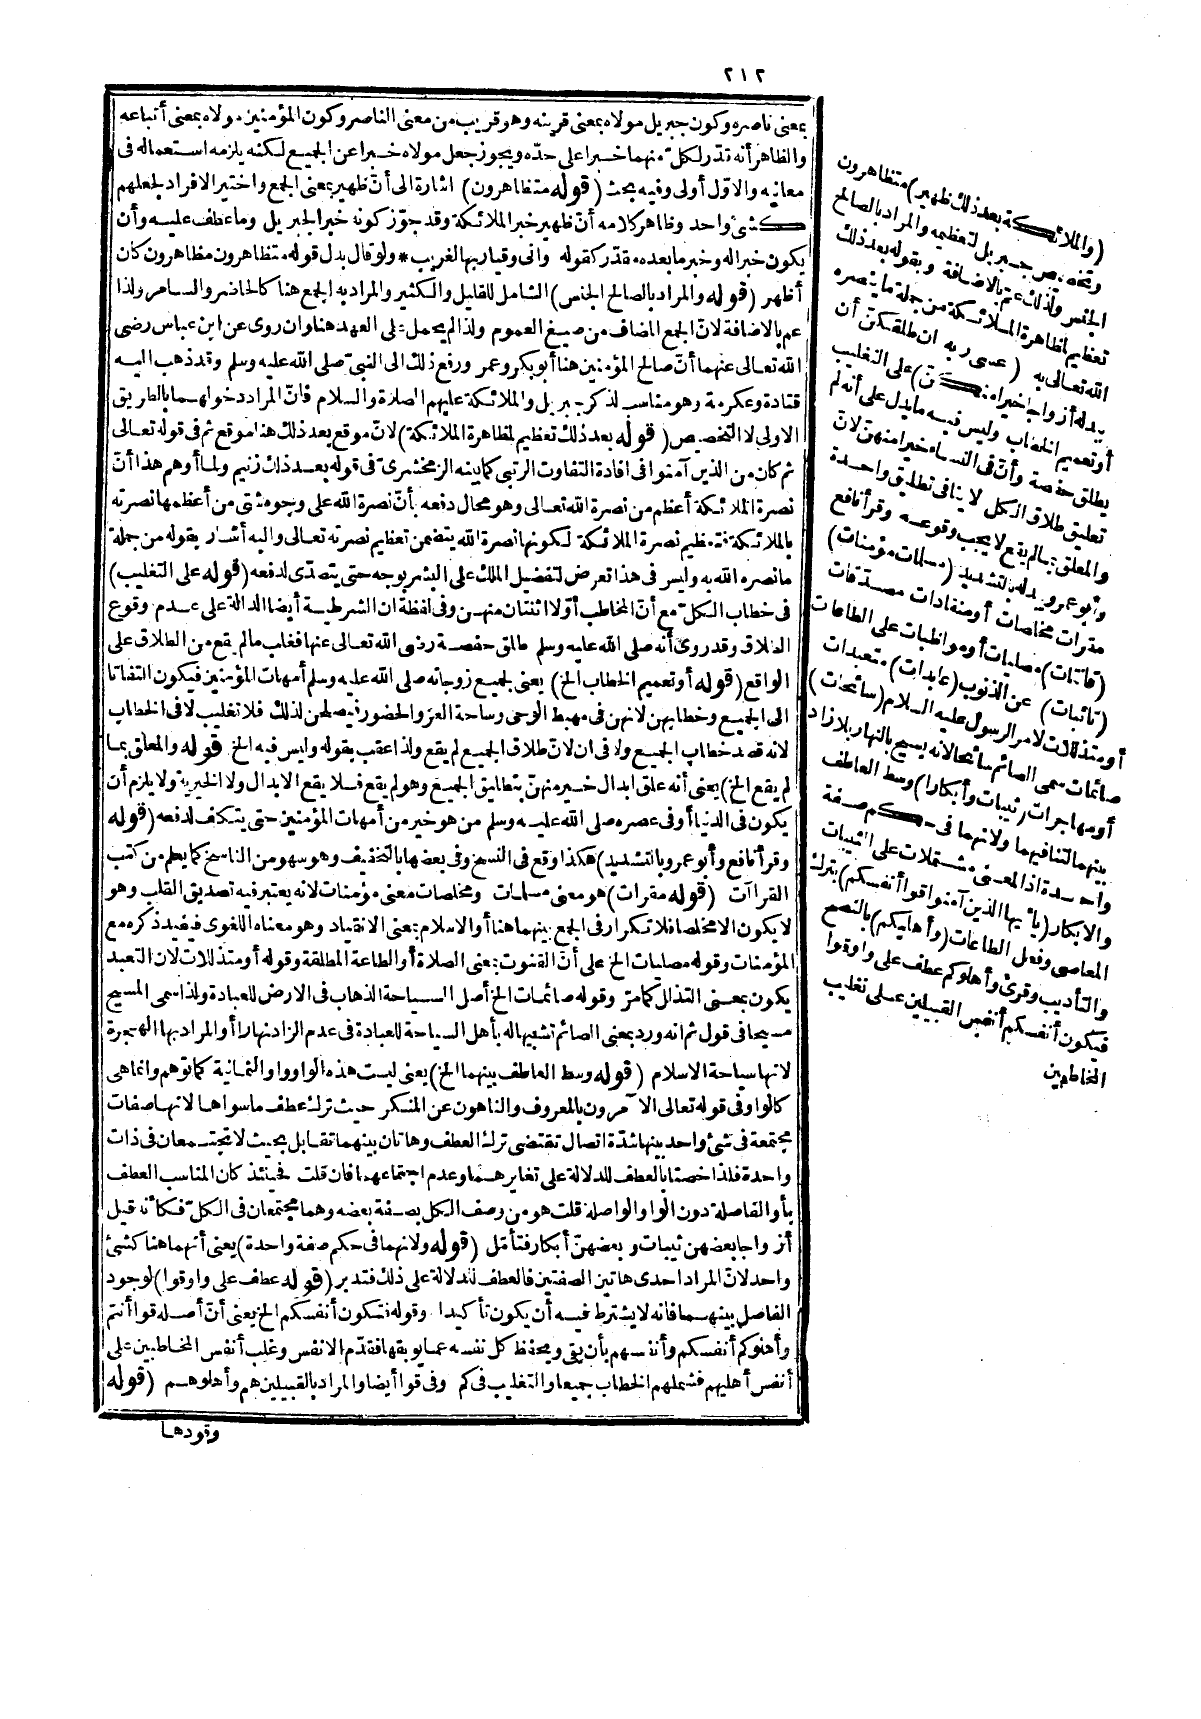 ٢١٢
بمعنى ناصره وكون جبريل مولاه بمعنى قرينه وهو قريب من معنى الناصر وكون المؤمنين مولاه بمعنى أتباعه
والظاهر أنه تقدر لكل منهما خبرا على حدّه ويجوز جعل مولاه خبرا عن الجميع لكنه يلزمه استعماله فى
معانيه والاوّل أولى وفيه بحث (قوله متظاهرون) اشارة الى أنّ ظهير بمعنى الجمع واختير الافراد لجعلهم
كشئ واحد وظاهر كلامه أنّ ظهير خبر الملائكة وقد جوّز كونه خبر الجبريل وما عطف عليه وأن
يكون خبرا له وخبر ما بعده مقدّر كقوله وانى وقيار بها لغريب * ولو قال بدل قوله متظاهرون مظاهرون كان
أظهر (قوله والمراد بالصالح الجنس) الشامل للقليل والكثير والمراد به الجمع هنا كالحاضر والسامر ولذا
عم بالاضافة لانّ الجمع المضاف من صيغ العموم ولذا لم يحمل على العهد هنا وان روى عن ابن عباس رضى
الله تعالى عنهما أنّ صالح المؤمنين هنا أبو بكر وعمر ورفع ذلك الى النبىّ صلى الله عليه وسلم وقد ذهب اليه
قتادة وعكرمة وهو مناسب لذكر جبريل والملائكة عليهم الصلاة والسلام فانّ المراد دخولهما بالطريق
الاولى لا التخصيص (قوله بعد ذلك تعظيم لمظاهرة الملائكة) لانّ موقع بعد ذلك هنا موقع ثم فى قوله تعالى
ثم كان من الذين آمنوا فى افادة التفاوت الرتبى كما بينه الزمخشرىّ فى قوله بعد ذلك زنيم ولما أوهم هذا أنّ
نصرة الملائكة أعظم من نصرة الله تعالى وهو محال دفعه بأنّ نصرة الله على وجوه شتى من أعظمها نصرته
بالملائكة فتعظيم نصرة الملائكة لكونها نصرة الله يتضمن تعظيم نصرته تعالى واليه أشار بقوله من جملة
ما نصره الله به وليس فى هذا تعرض لتفضيل الملك على البشر بوجه حتى يتصدّى لدفعه (قوله على التغليب)
فى خطاب الكلّ مع أنّ المخاطب أوّلا اثنتان منهن وفى لفظة ان الشرطية أيضا الدالة على عدم وقوع
الطلاق وقد روى أنه صلى الله عليه وسلم طلق حفصة رضى الله تعالى عنها فغلب ما لم يقع من الطلاق على
الواقع (قوله أو تعميم الخطاب الخ) يعنى لجميع زوجاته صلى الله عليه وسلم أمهات المؤمنين فيكون التفاتا
الى الجميع وخطابهن لانهن فى مهبط الوحى وساحة العز والحضور فيصلحن لذلك فلا تغليب لا فى الخطاب
لانه قصد خطاب الجميع ولا فى ان لانّ طلاق الجميع لم يقع ولذا عقب بقوله وليس فيه الخ قوله والمعلق بما
لم يقع الخ) يعنى أنه علق ابدال خير منهنّ بتطليق الجميع وهو لم يقع فلا يقع الابدال ولا الخيرية ولا يلزم أن
يكون فى الدنيا أو فى عصره صلى الله عليه وسلم من هو خير من أمهات المؤمنين حتى يتكلف لدفعه (قوله
وقرأ نافع وأبو عمرو بالتشديد) هكذا وقع فى النسخ وفى بعضها بالتخفيف وهو سهو من الناسخ كما يعلم من كتب
القراآت (قوله مقرات) هو معنى مسلمات ومخلصات معنى مؤمنات لانه يعتبر فيه تصديق القلب وهو
لا يكون الا مخلصا فلا تكرار فى الجمع بينهما هنا أو الاسلام بمعنى الانقياد وهو معناه اللغوى فيفيد ذكره مع
المؤمنات وقوله مصليات الخ على أنّ القنوت بمعنى الصلاة أو الطاعة المطلقة وقوله أو متذللات لان التعبد
يكون بمعنى التذلل كما مرّ وقوله صائمات الخ أصل السياحة الذهاب فى الارض للعبادة ولذا سمى المسيح
مسيحا فى قول ثم انه ورد بمعنى الصائم تشبيها له بأهل السياحة للعبادة فى عدم الزاد نهارا أو المراد بها الهجرة
لانها سياحة الاسلام (قوله وسط العاطف بينهما الخ) يعنى ليست هذه الواو واو الثمانية كما توهم وانما هى
كالواو فى قوله تعالى الآمرون بالمعروف والناهون عن المنكر حيث ترك عطف ما سواها لانها صفات
مجتمعة فى شئ واحد بينها شدّة اتصال تقتضى ترك العطف وهاتان بينهما تقابل بحيث لا تجتمعان فى ذات
واحدة فلذا خصتا بالعطف للدلالة على تغايرهما وعدم اجتماعهما فان قلت فحينئذ كان المناسب العطف
بأو الفاصلة دون الواو الواصلة قلت هو من وصف الكل بصفة بعضه وهما مجتمعان فى الكلّ فكأنه قيل
أزواجا بعضهن ثيبات وبعضهنّ أبكار فتأمّل (قوله ولانهما فى حكم صفة واحدة) يعنى أنهما هنا كشئ
واحد لانّ المراد احدى هاتين الصفتين فالعطف للدلالة على ذلك فتدبر (قوله عطف على واو قوا) لوجود
الفاصل بينهما فانه لا يشترط فيه أن يكون تأكيدا وقوله فتكون أنفسكم الخ يعنى أنّ أصله قوا أنتم
وأهلوكم أنفسكم وأنفسهم بأن يقى ويحفظ كل نفسه عما يوبقها فقدّم الانفس وغلب أنفس المخاطبين على
أنفس أهليهم فشملهم الخطاب جميعا والتغليب فى كم وفى قوا أيضا والمراد بالقبيلين هم وأهلوهم (قوله
وقودها
(والملائكة بعد ذلك ظهير) متظاهرون
وتخصيص جبريل لتعظيمه والمراد بالصالح
الجنس ولذلك عمّ بالاضافة وبقوله بعد ذلك
تعظيم لمظاهرة الملائكة من جملة ما ينصره
الله تعالى به (عسى ربه ان طلقكنّ أن
يبدله أزواجا خيرا منكنّ) على التغليب
أو تعميم الخطاب وليس فيه ما يدل على أنه لم
يطلق حفصة وأنّ فى النساء خيرا منهن لانّ
تعليق طلاق الكل لا ينافى تطليق واحدة
والمعلق بما لم يقع لا يجب وقوعه وقرأ نافع
وأبو عمرو يبدله بالتشديد (مسلمات مؤمنات)
مقرات مخلصات أو منقادات مصدقات
(قانتات) مصليات أو مواظبات على الطاعات
(تائبات) عن الذنوب (عابدات) متعبدات
أو متذللات لامر الرسول عليه السلام (سائحات)
صائمات سمى الصائم سائحا لانه يسيح بالنهار بلا زاد
أو مهاجرات (ثيبات وأبكارا) وسط العاطف
بينهما لتنافيهما ولانهما فى حكم صفة
واحدة اذ المعنى مشتملات على الثيبات
والابكار (يا أيها الذين آمنوا قوا أنفسكم) بترك
المعاصى وفعل الطاعات (وأهليكم) بالنصح
والتأديب وقرئ وأهلوكم عطف على واو قوا
فيكون أنفسكم أنفس القبيلين على تغليب
المخاطبين